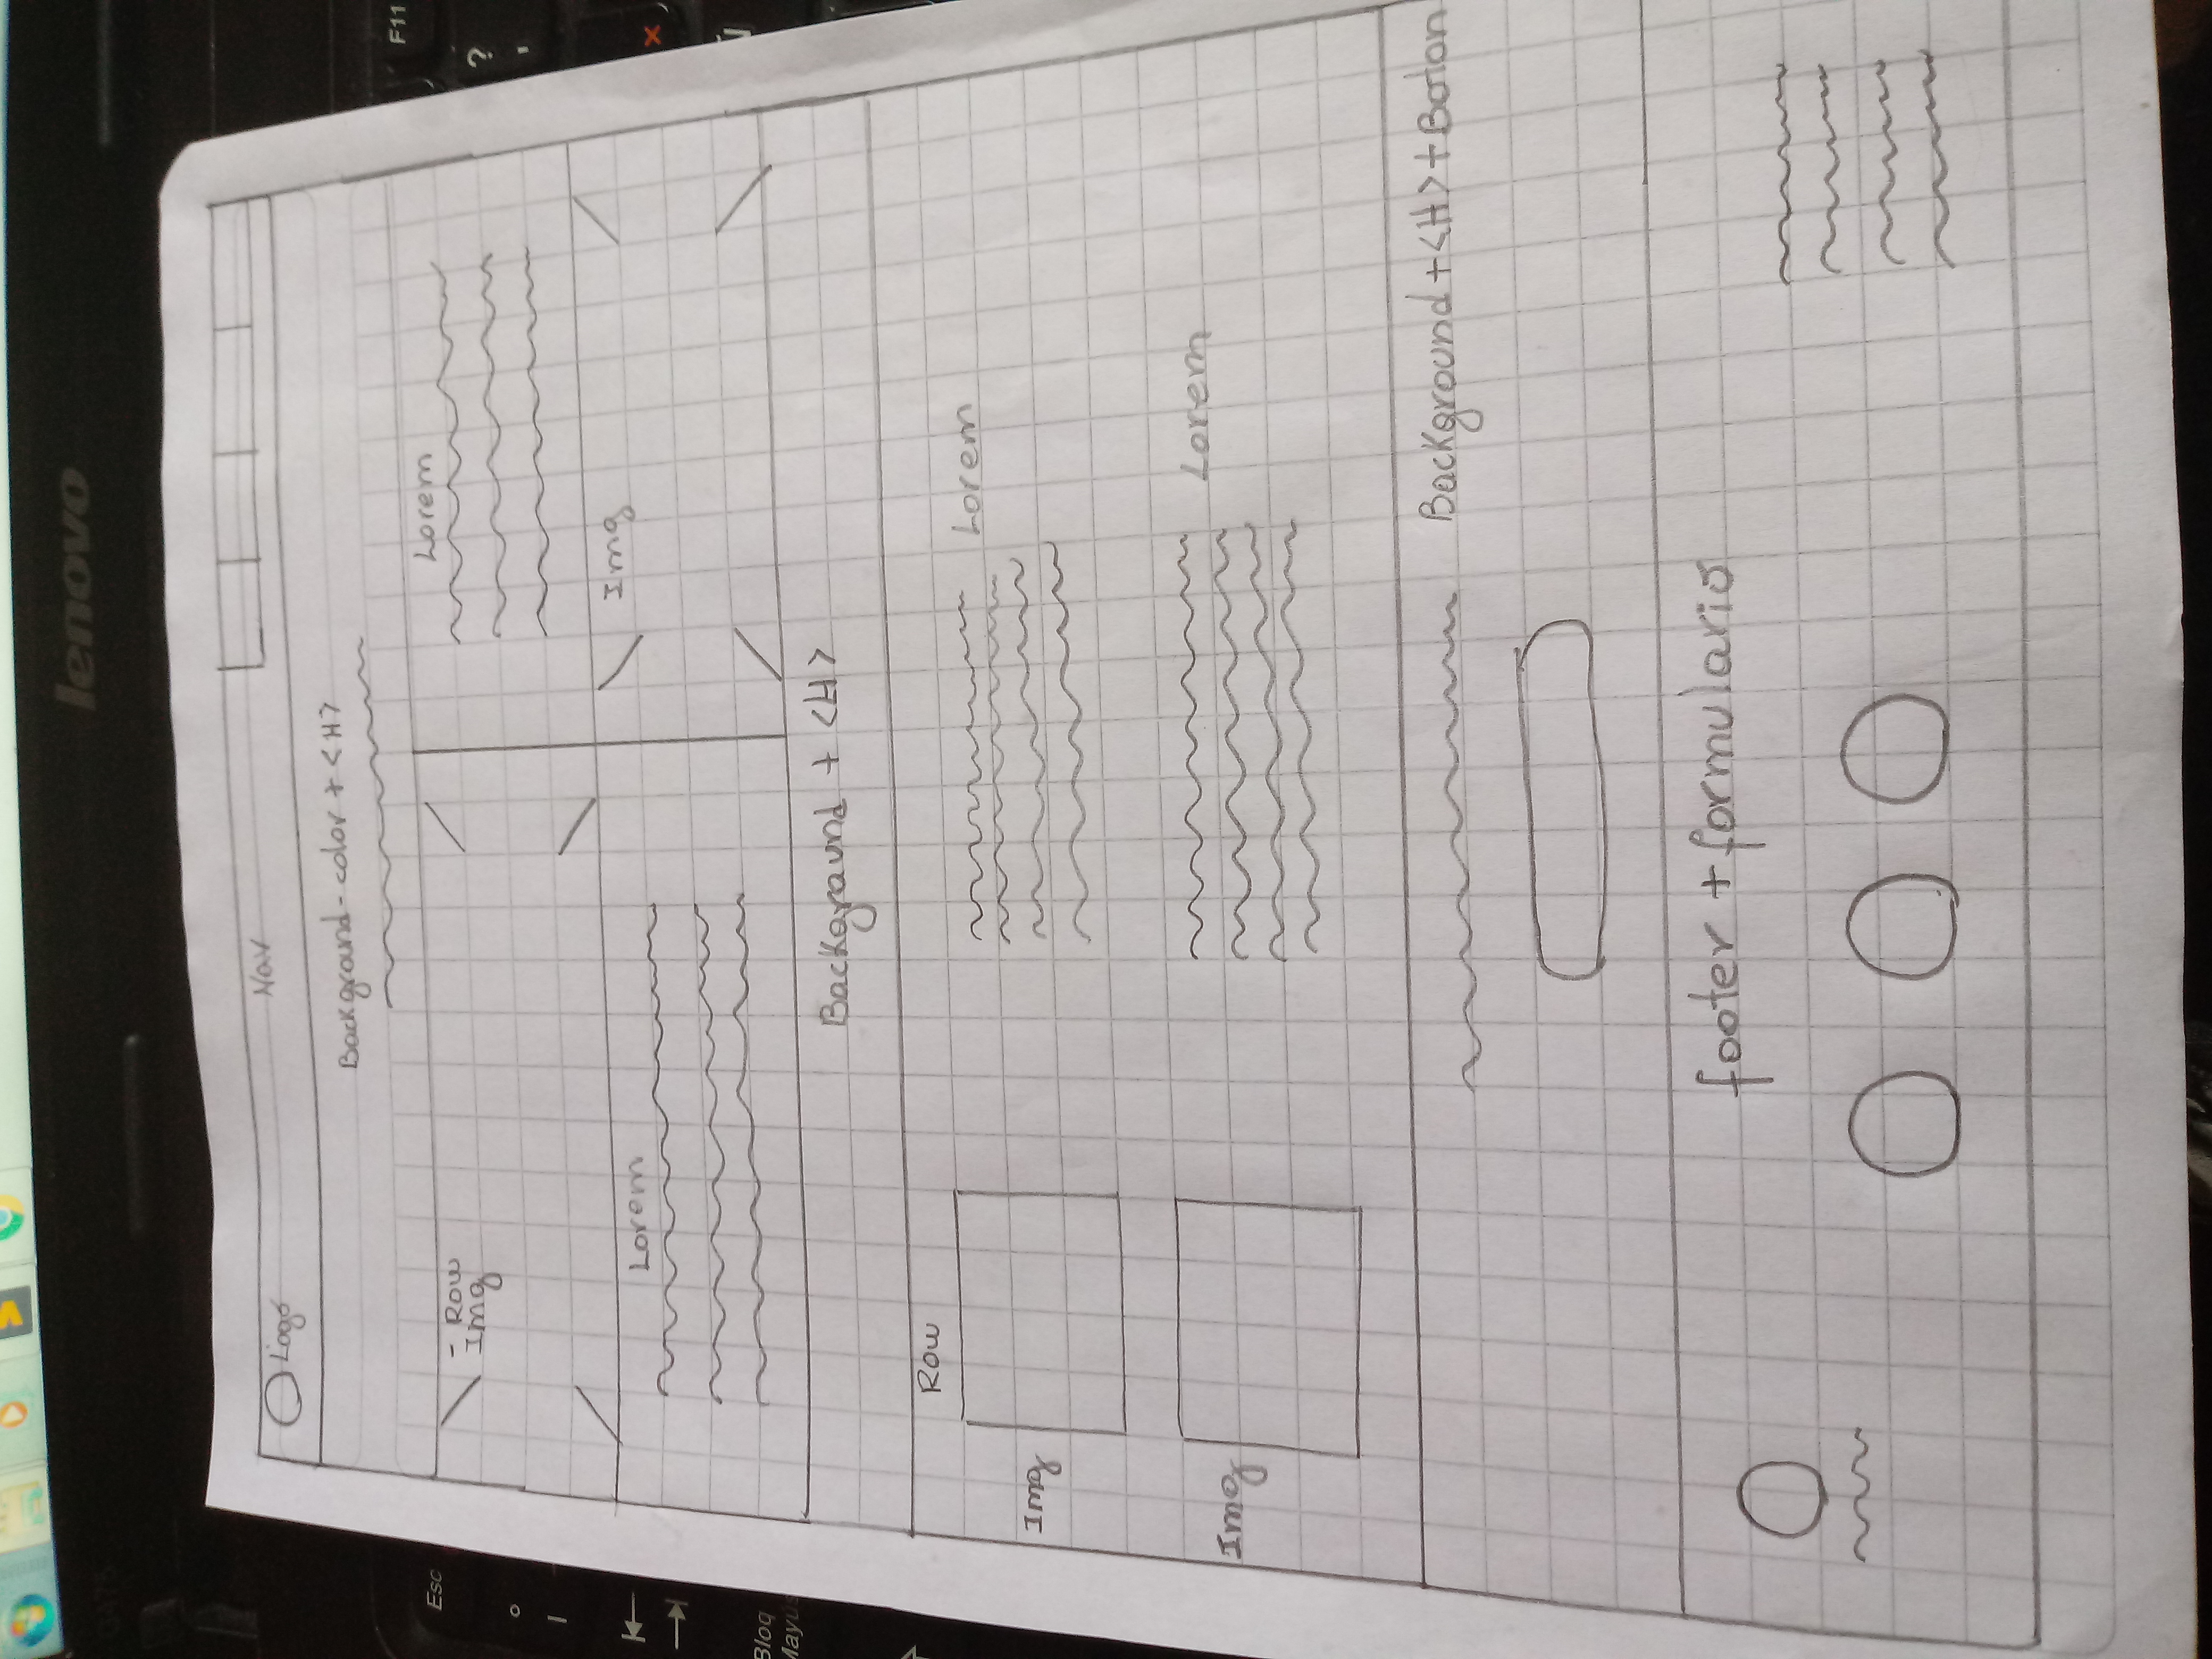 lenovo
Esc
F11
?
'
°
|
Bloq
Mayús
Logo
Nav
Background-color + <H>
- Row
Img
Lorem
Lorem
Img
Backgraund + <H>
Row
Img
Lorem
Img
Lorem
Background + <H> + Boton
footer + formulario